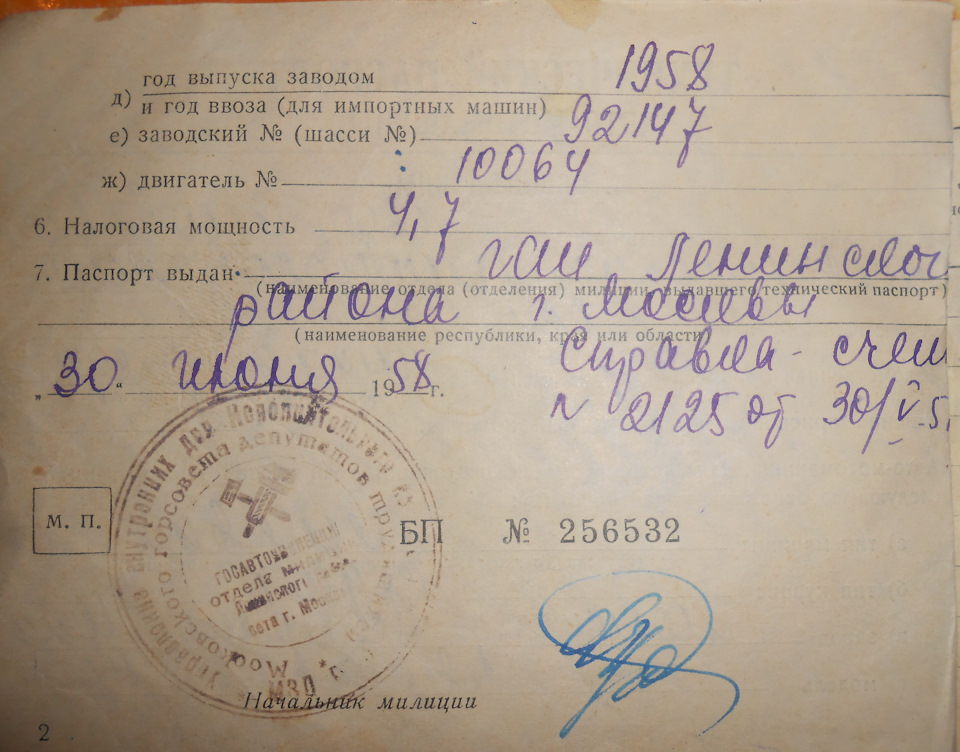 год выпуска заводом 1958
д) и год ввоза (для импортных машин)
е) заводский № (шасси №) 92147
ж) двигатель № 10064
6. Налоговая мощность 4,7
7. Паспорт выдан гаи Ленинског
(наименование отдела (отделения) милиции, выдавшего технический паспорт)
района г. Москвы
(наименование республики, края или области)
Справка-счет
„30“ июня 1958 г.
N 2125 от 30/V-5
Управление внутренних дел Исполнительного
Московского горсовета депутатов трудящихся
отдела милиции
Ленинского
г. Москвы
М. П.
БП № 256532
Начальник милиции
2